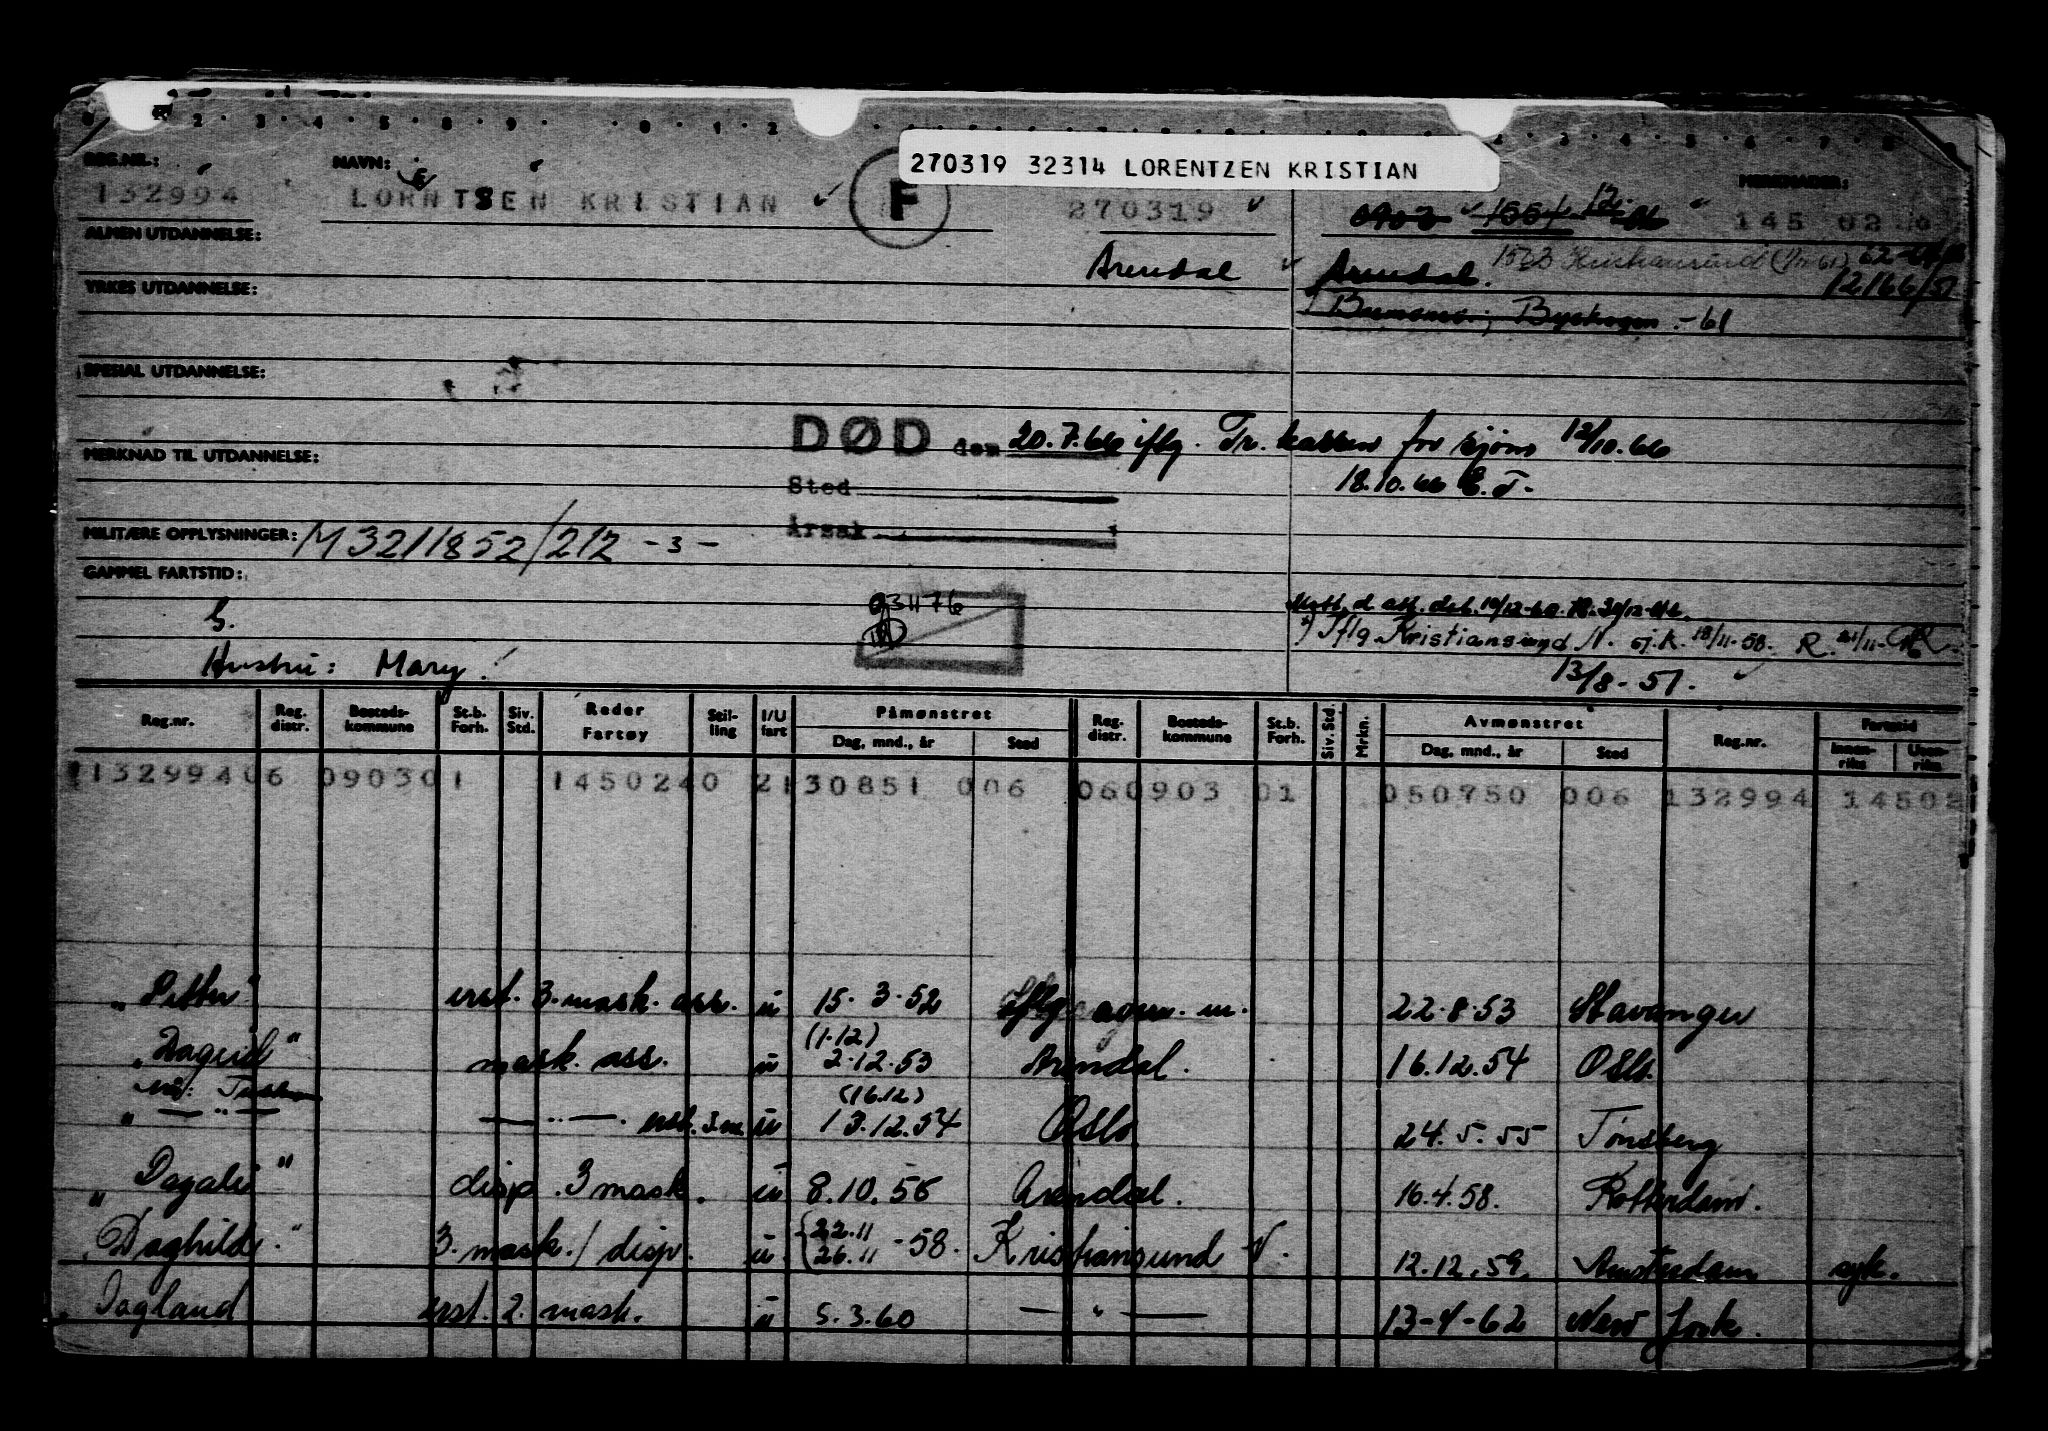 270319 32314 LORENTZEN KRISTIAN
REG.NR.: NAVN: MERKNADER:
132994 LORNTSEN KRISTIAN F 270319 145 02
E
ALMEN UTDANNELSE:
Arendal Arendal. 1573 Kristiansund 12166/51
YRKES UTDANNELSE:
-61
SPESIAL UTDANNELSE:
DØD den 20.7.66 iflg. Tr. kassen for sjøm 12/10.66
MERKNAD TIL UTDANNELSE:
Sted 18.10.66 E.T.
MILITÆRE OPPLYSNINGER: M3211852/212 -3-
Årsak
GAMMEL FARTSTID:
G. 031176
Iflg Kristiansund N. sj.k. 18/11-58. R. 21/11-
Hustru: Mary!
13/8-51.
Reg.nr. Reg. distr. Bosteds-kommune St.b. Forh. Siv. Std. Reder Fartøy Stil-ling I/U fart Påmønstret Dag, mnd., år Sted Reg. distr. Bosteds-kommune St.b. Forh. Siv. Std. Mrkn. Avmønstret Dag, mnd., år Sted Reg.nr. Fartstid Innen-riks Uten-riks
13299406 090301 1450240 2130851 006 060903 01 050750 006 132994 14502
"Pitter" urst. 3. mask. ass. u 15.3.52 Iflg avm. m. 22.8.53 Stavanger
(1.12)
"Dagrid" mask. ass. u 2.12.53 Arendal. 16.12.54 Oslo.
(16.12)
" — " — — " —. urst. 3 m. u 13.12.54 Oslo 24.5.55 Tønsberg
"Dagali" disp. 3 mask. u 8.10.56 Arendal. 16.4.58. Rotterdam.
"Daghild." 3. mask./disp. u {22.11 26.11 -58. Kristiansund N. 12.12.59. Amsterdam syk.
"Dagland urst. 2. mask. u 5.3.60 — " — 13-4-62 New York.